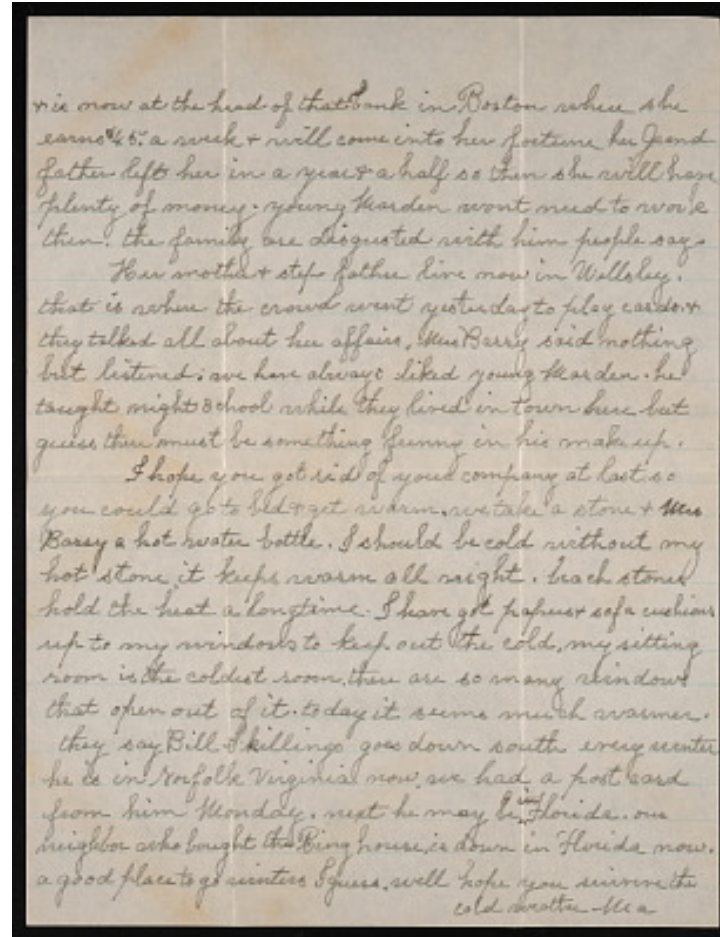 + is now at the head of that bank in Boston where she
earns $45. a week + will come into her fortune her Grand
father left her in a year + a half so then she will have
plenty of money. young Marden wont need to work
then. the family are disgusted with him people say.
Her mother + step father live now in Wellsley.
that is where the crowd went yesterday to play cards. +
they talked all about her affairs. Mrs Barry said nothing
but listened. we have always liked young Marden. he
taught night school while they lived in town here but
guess there must be something funny in his make up.
I hope you got rid of your company at last. so
you could go to bed + get warm. we take a stone + Mrs
Barry a hot water bottle. I should be cold without my
hot stone. it keeps warm all night. beach stones
hold the heat a long time. I have got papers + sofa cushions
up to my windows to keep out the cold. my sitting
room is the coldest room. there are so many windows
that open out of it. today it seems much warmer.
they say Bill Skillings goes down south every winter
he is in Norfolk Virginia now. we had a post card
from him Monday. next he may be in Florida. our
neighbor who bought the Bing house, is down in Florida now.
a good place to go winters I guess. well hope you survive the
cold weather Ma